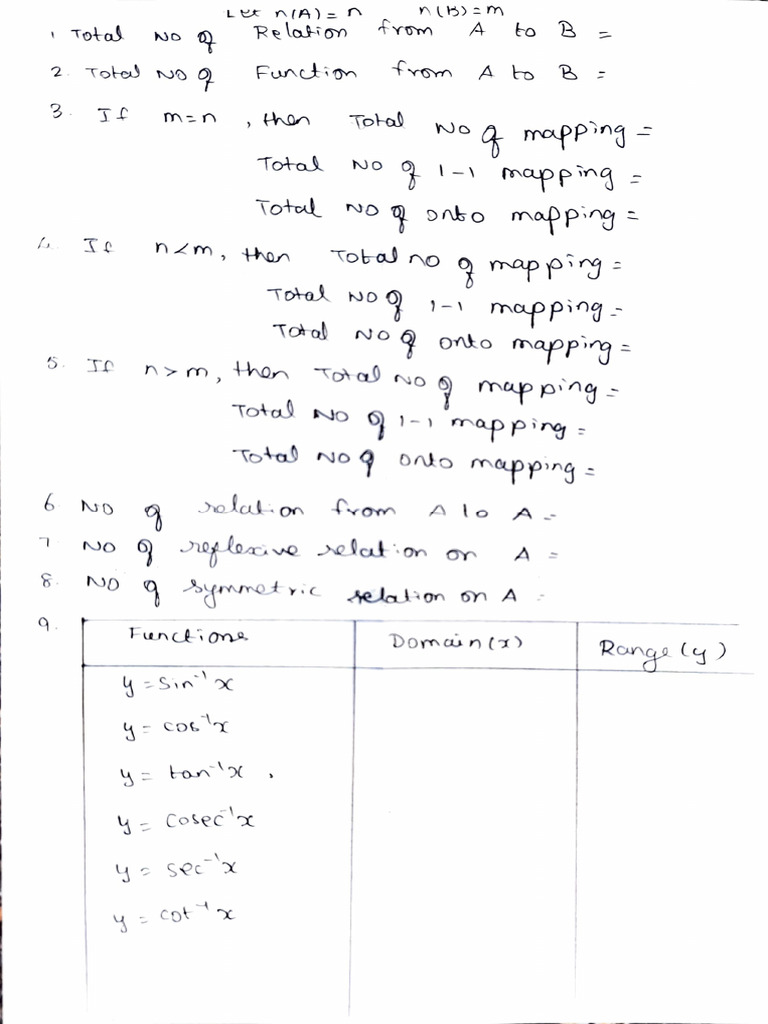 Let n(A) = n n(B) = m
1. Total No of Relation from A to B =
2. Total No of Function from A to B =
3. If m=n, then Total No of mapping =
Total No of 1-1 mapping =
Total No of onto mapping =
4. If n<m, then Total no of mapping =
Total No of 1-1 mapping =
Total No of onto mapping =
5. If n>m, then Total No of mapping =
Total No of 1-1 mapping =
Total No of onto mapping =
6 No of relation from A to A =
7 No of reflexive relation on A =
8. No of symmetric relation on A =
9. Functions Domain(x) Range(y)
y = sin⁻¹x
y = cos⁻¹x
y = tan⁻¹x .
y = cosec⁻¹x
y = sec⁻¹x
y = cot⁻¹x